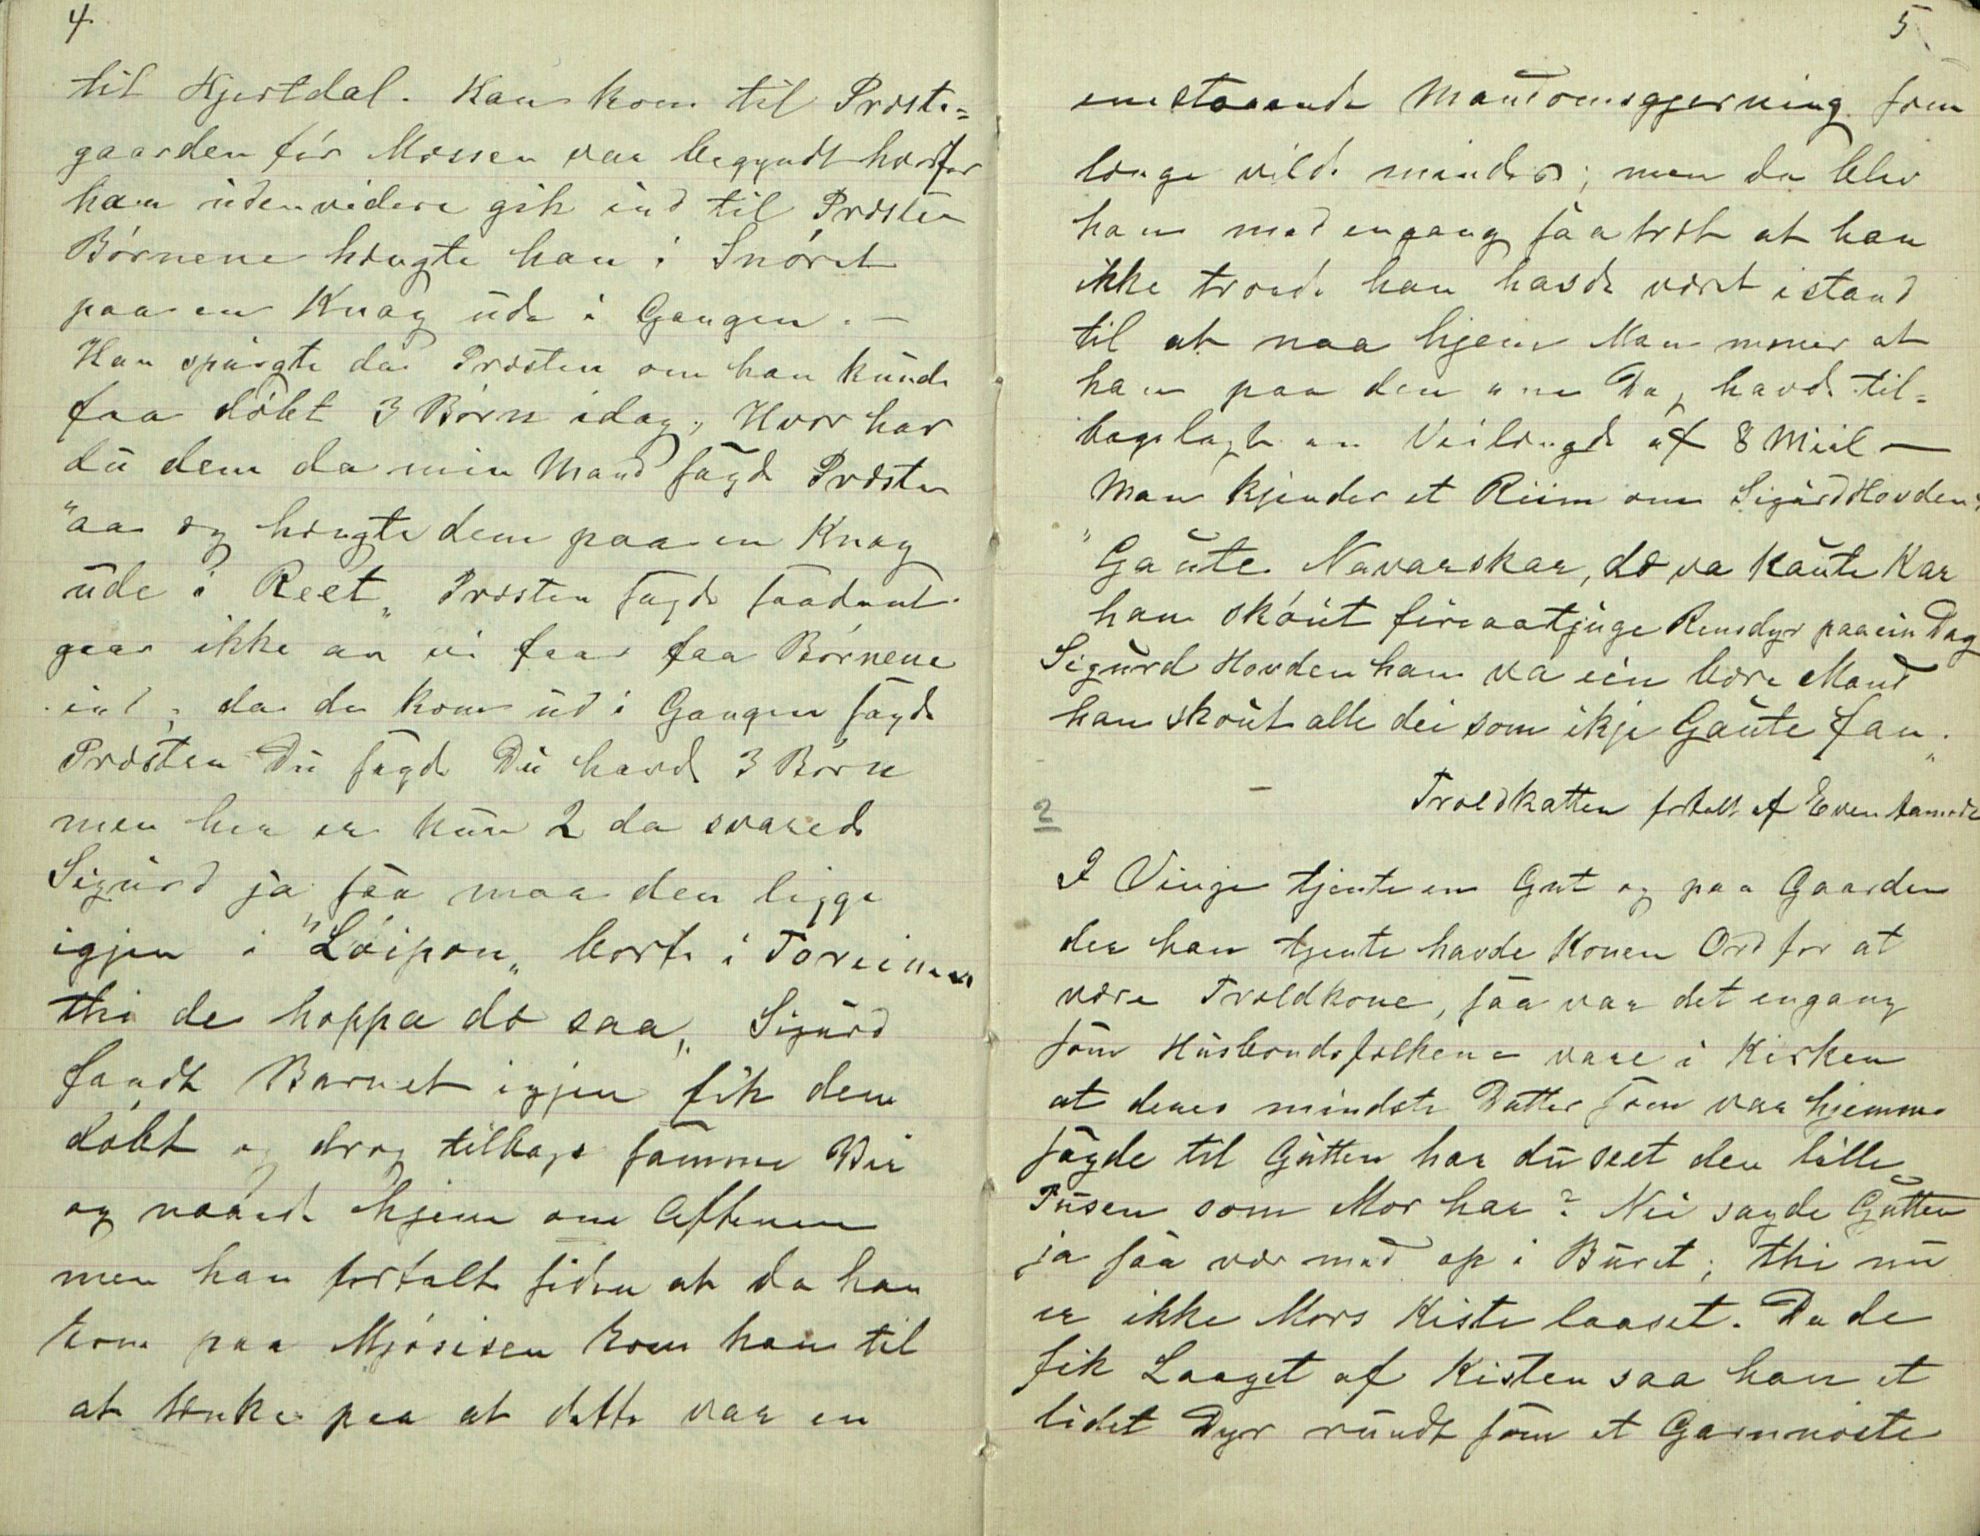 4.
til Hjertdal. Han kom til Præste=
gaarden før Messen var begyndt hvorfor
han uden videre gik ind til Præsten
Børnene hængte han i Snøret
paa en Knag ude i Gangen. —
Han spurgte da Præsten om han kunde
faa døbt 3 Børn idag; Hvor har
du dem da min Mand sagde Præsten
"aa eg hengte dem paa en Knag
ude i Reet" Præsten sagde saadant
gaar ikke an vi faar faa Børnene
ind; da de kom ud i Gangen sagde
Præsten Du sagde Du havde 3 Børn
men her er kun 2 da svarede
Sigurd ja saa maa den ligge
igjen i "Løipon" borte i
thi de hoppa dæ saa" Sigurd
fandt Barnet igjen fik dem
døbt og drog tilbage samme Vei
og naaede hjem om Aftenen
men han fortalte siden at da han
kom paa Mjøsisen kom han til
at tænke paa at dette var en
5
enestaaende Manddomsgjerning som
længe vilde mindes; men da blev
han med engang saa træt at han
ikke troede han havde været istand
til at naa hjem Man mener at
han paa den ene Dag havde til=
bagelagt en Veilængde af 8 Miil —
Man kjender et Riim om Sigurd Hovden:
"Gaute Navarskar, dæ va kaute Kar
han skøut firaatjuge Rensdyr paa ein Dag
Sigurd Hovden han va ein bære Mand
han skout alle dei som ikje Gaute fan".
—
2
Troldkatten fortalt af Even
I Vinje tjente en Gut og paa Gaarden
der han tjente havde Konen Ord for at
være Troldkone, saa var det engang
som Husbondsfolkene vare i Kirken
at deres mindste Datter som var hjemme
sagde til Gutten har du seet den lille
Pusen som Mor har? Nei sagde Gutten
ja saa vær med op i Buret; thi nu
er ikke Mors Kiste laaset. Da de
fik Laaget af Kisten saa han et
lidet Dyr rundt som et Garnnøste